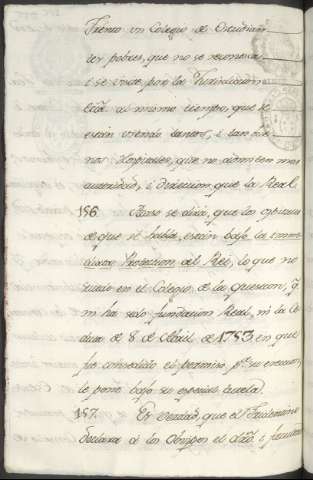 Frento un Colegio de Estudian-
tes pobres, que no se reconosca,
i se visite por la Jurisdiccion
al mismo tiempo, que se
están viendo tantos, i tan
nos Hospitales, que no admiten mas
autoridad, i direccion, que la Real.
156. Acaso se dirá, que los
de que se habla, están bajo la imme-
diata Proteccion del Rei, lo que no
en el Colegio de la question, q.
ni ha sido fundacion Real, ni la Ce-
dula de 8 de Abril de 1753 en que
fue concedido el permiso p.ª su
le pone bajo su especial tutela.
157. Es verdad, que el Tridentino
declara a los Obispos el dro. i